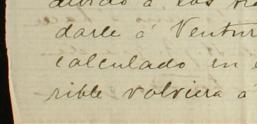 avido á los
darle á Ventur
calculado en
rible volviera á